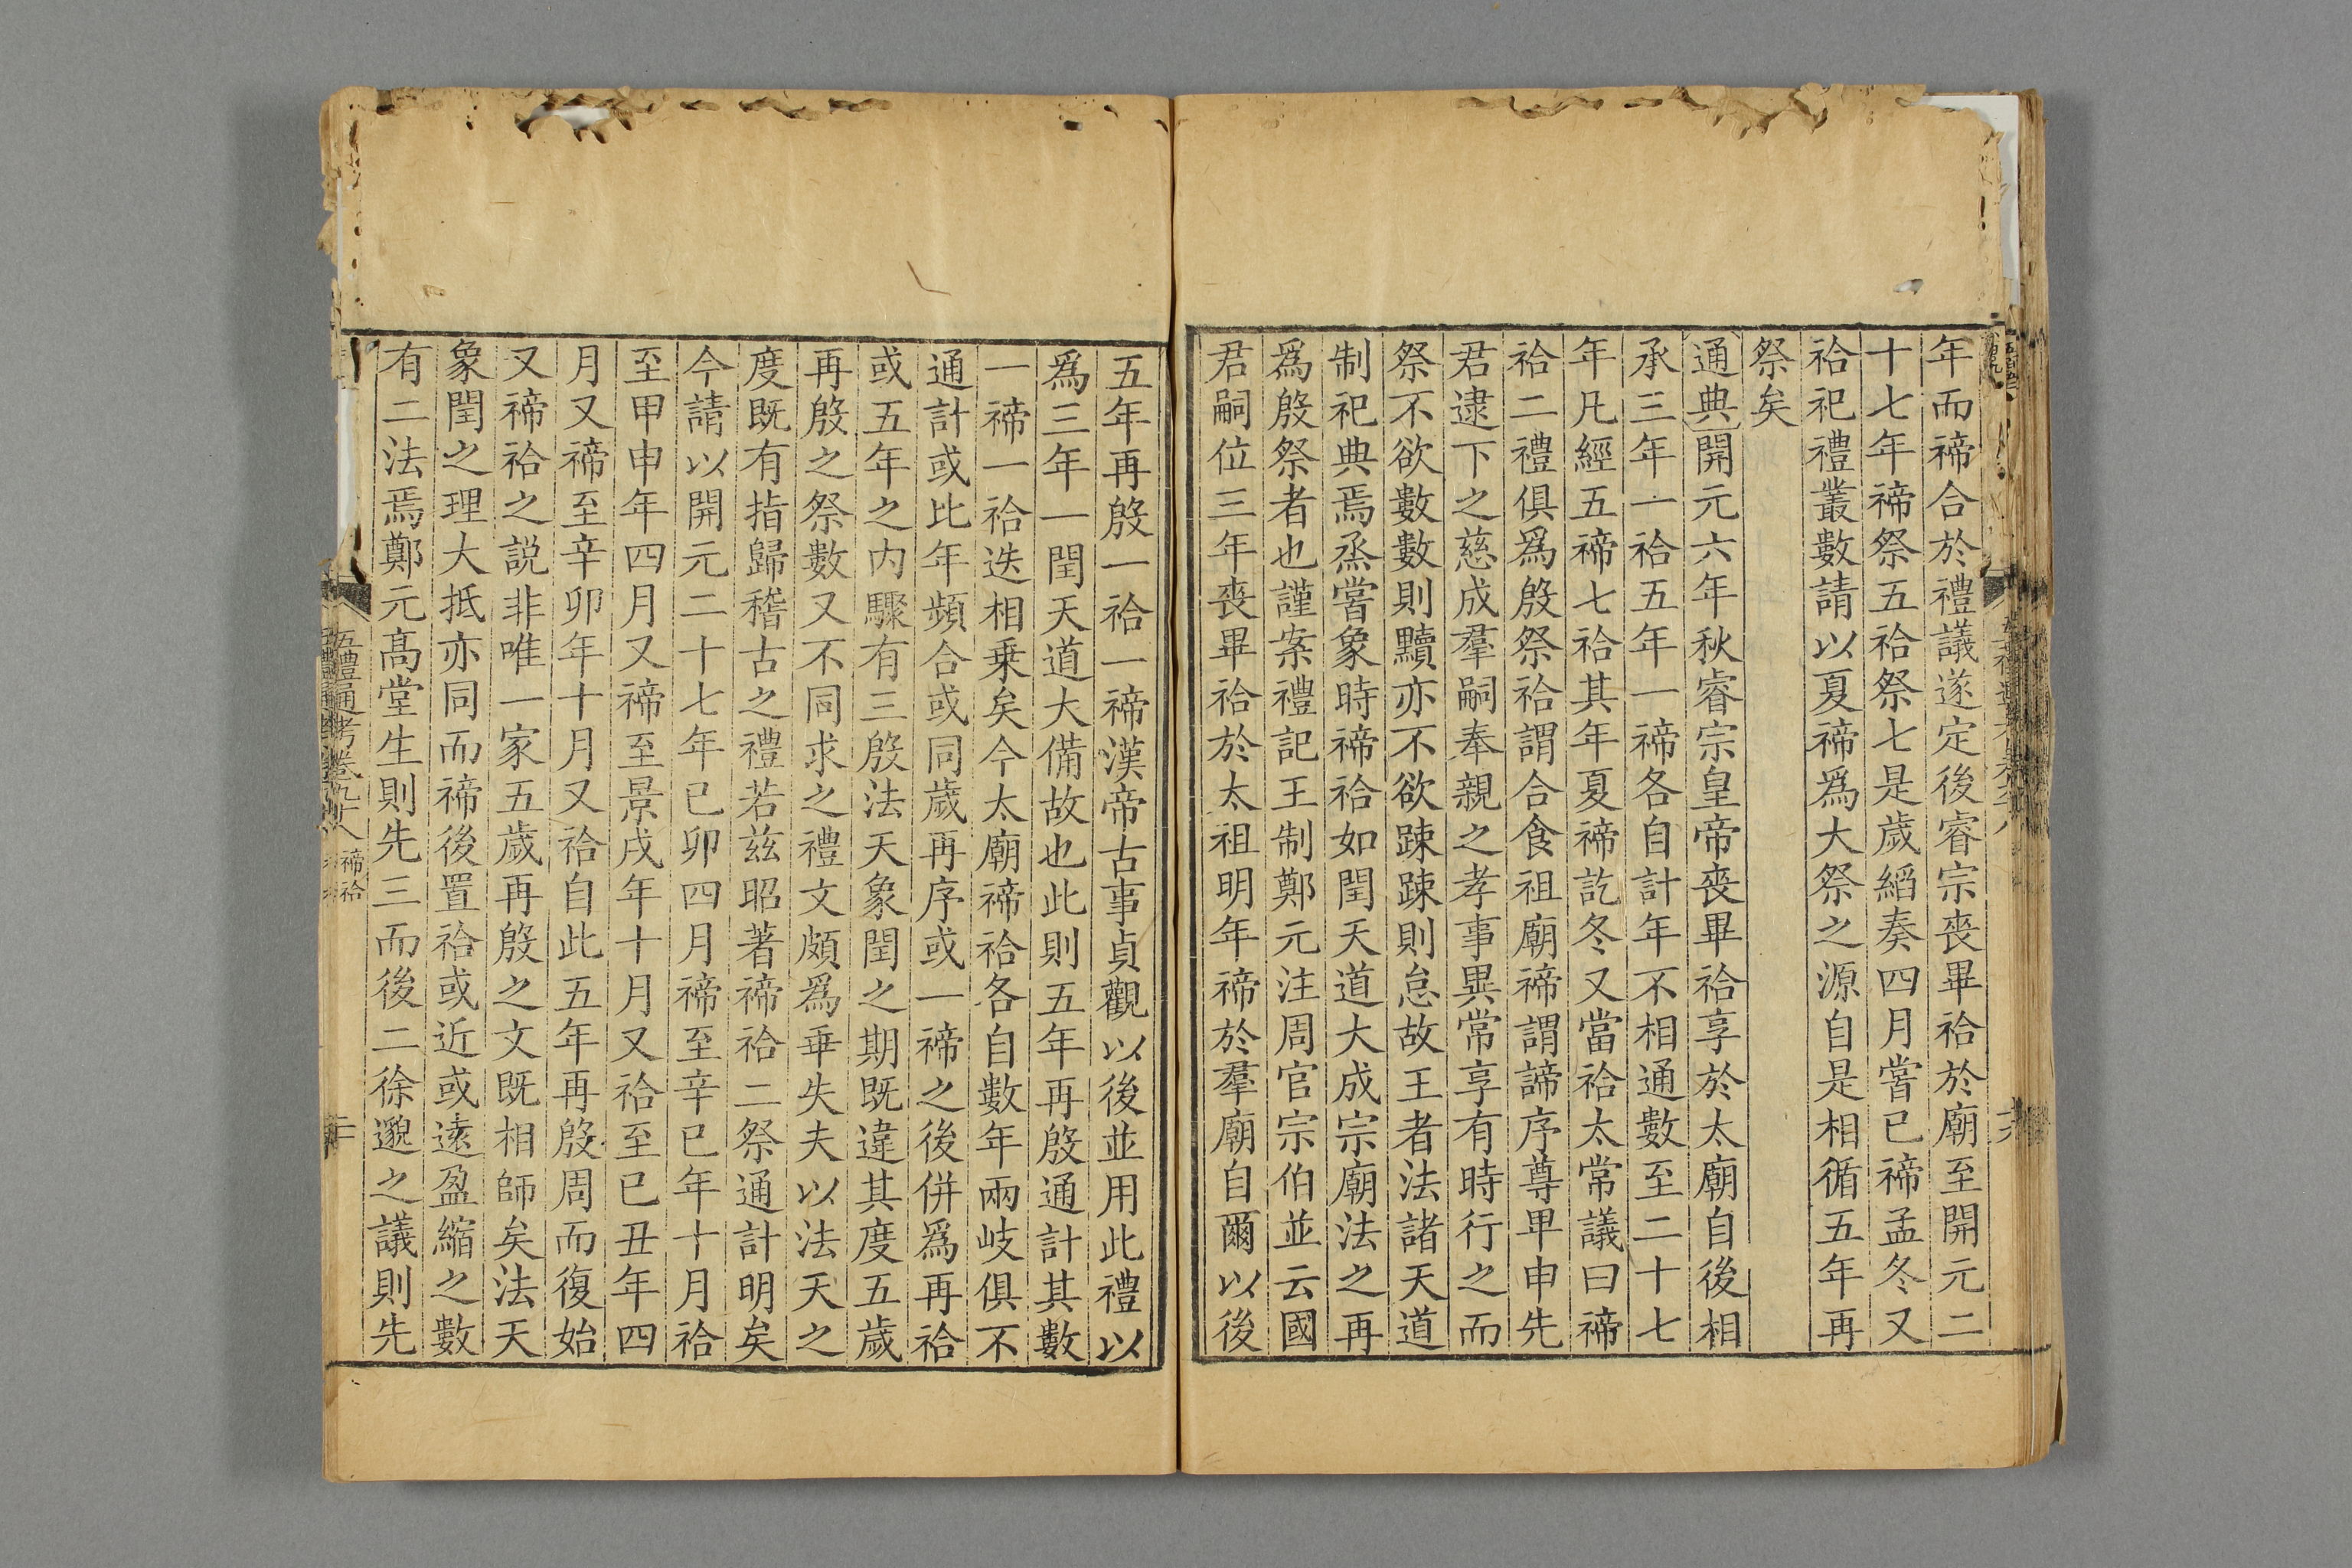 年而禘合於禮議遂定後睿宗喪畢祫於廟至開元二
十七年禘祭五祫祭七是歲縚奏四月嘗已禘孟冬又
祫祀禮叢數請以夏禘爲大祭之源自是相循五年再
祭矣
通典開元六年秋睿宗皇帝喪畢祫享於太廟自後相
承三年一祫五年一禘各自計年不相通數至二十七
年凡經五禘七祫其年夏禘訖冬又當祫太常議曰禘
祫二禮俱爲殷祭祫謂合食祖廟禘謂諦序尊卑申先
君逮下之慈成羣嗣奉親之孝事異常享有時行之而
祭不欲數數則黷亦不欲踈踈則怠故王者法諸天道
制祀典焉烝嘗象時禘祫如閏天道大成宗廟法之再
爲殷祭者也謹案禮記王制鄭元注周官宗伯並云國
君嗣位三年喪畢祫於太祖明年禘於羣廟自爾以後
五年再殷一祫一禘漢帝古事貞觀以後並用此禮以
爲三年一閏天道大備故也此則五年再殷通計其數
一禘一祫迭相乗矣今太廟禘祫各自數年兩岐俱不
通計或比年頻合或同歲再序或一禘之後併爲再祫
或五年之内驟有三殷法天象閏之期既違其度五歲
再殷之祭數又不同求之禮文頗爲乖失夫以法天之
度既有指歸稽古之禮若茲昭著禘祫二祭通計明矣
今請以開元二十七年己卯四月禘至辛巳年十月祫
至甲申年四月又禘至景戌年十月又祫至己丑年四
月又禘至辛卯年十月又祫自此五年再殷周而復始
又禘祫之説非唯一家五歲再殷之文既相師矣法天
象閏之理大抵亦同而禘後置祫或近或遠盈縮之數
有二法焉鄭元髙堂生則先三而後二徐邈之議則先
五禮通考卷九十八 禘祫
二十